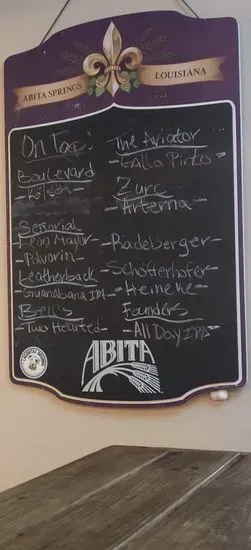 ABITA SPRINGS LOUISIANA
On Tap:
Boulevard
- Kölsch -
Señorial
- Peon Mayor -
- Polvorin
Leatherback
- Guanabana IPA -
Bell's
- Two Hearted -
The Aviator
- Gallo Pinto -
Zurc
- Arterna -
- Radeberger -
- Schöfferhofer -
- Heineke -
Founders
- All Day IPA -
ABITA